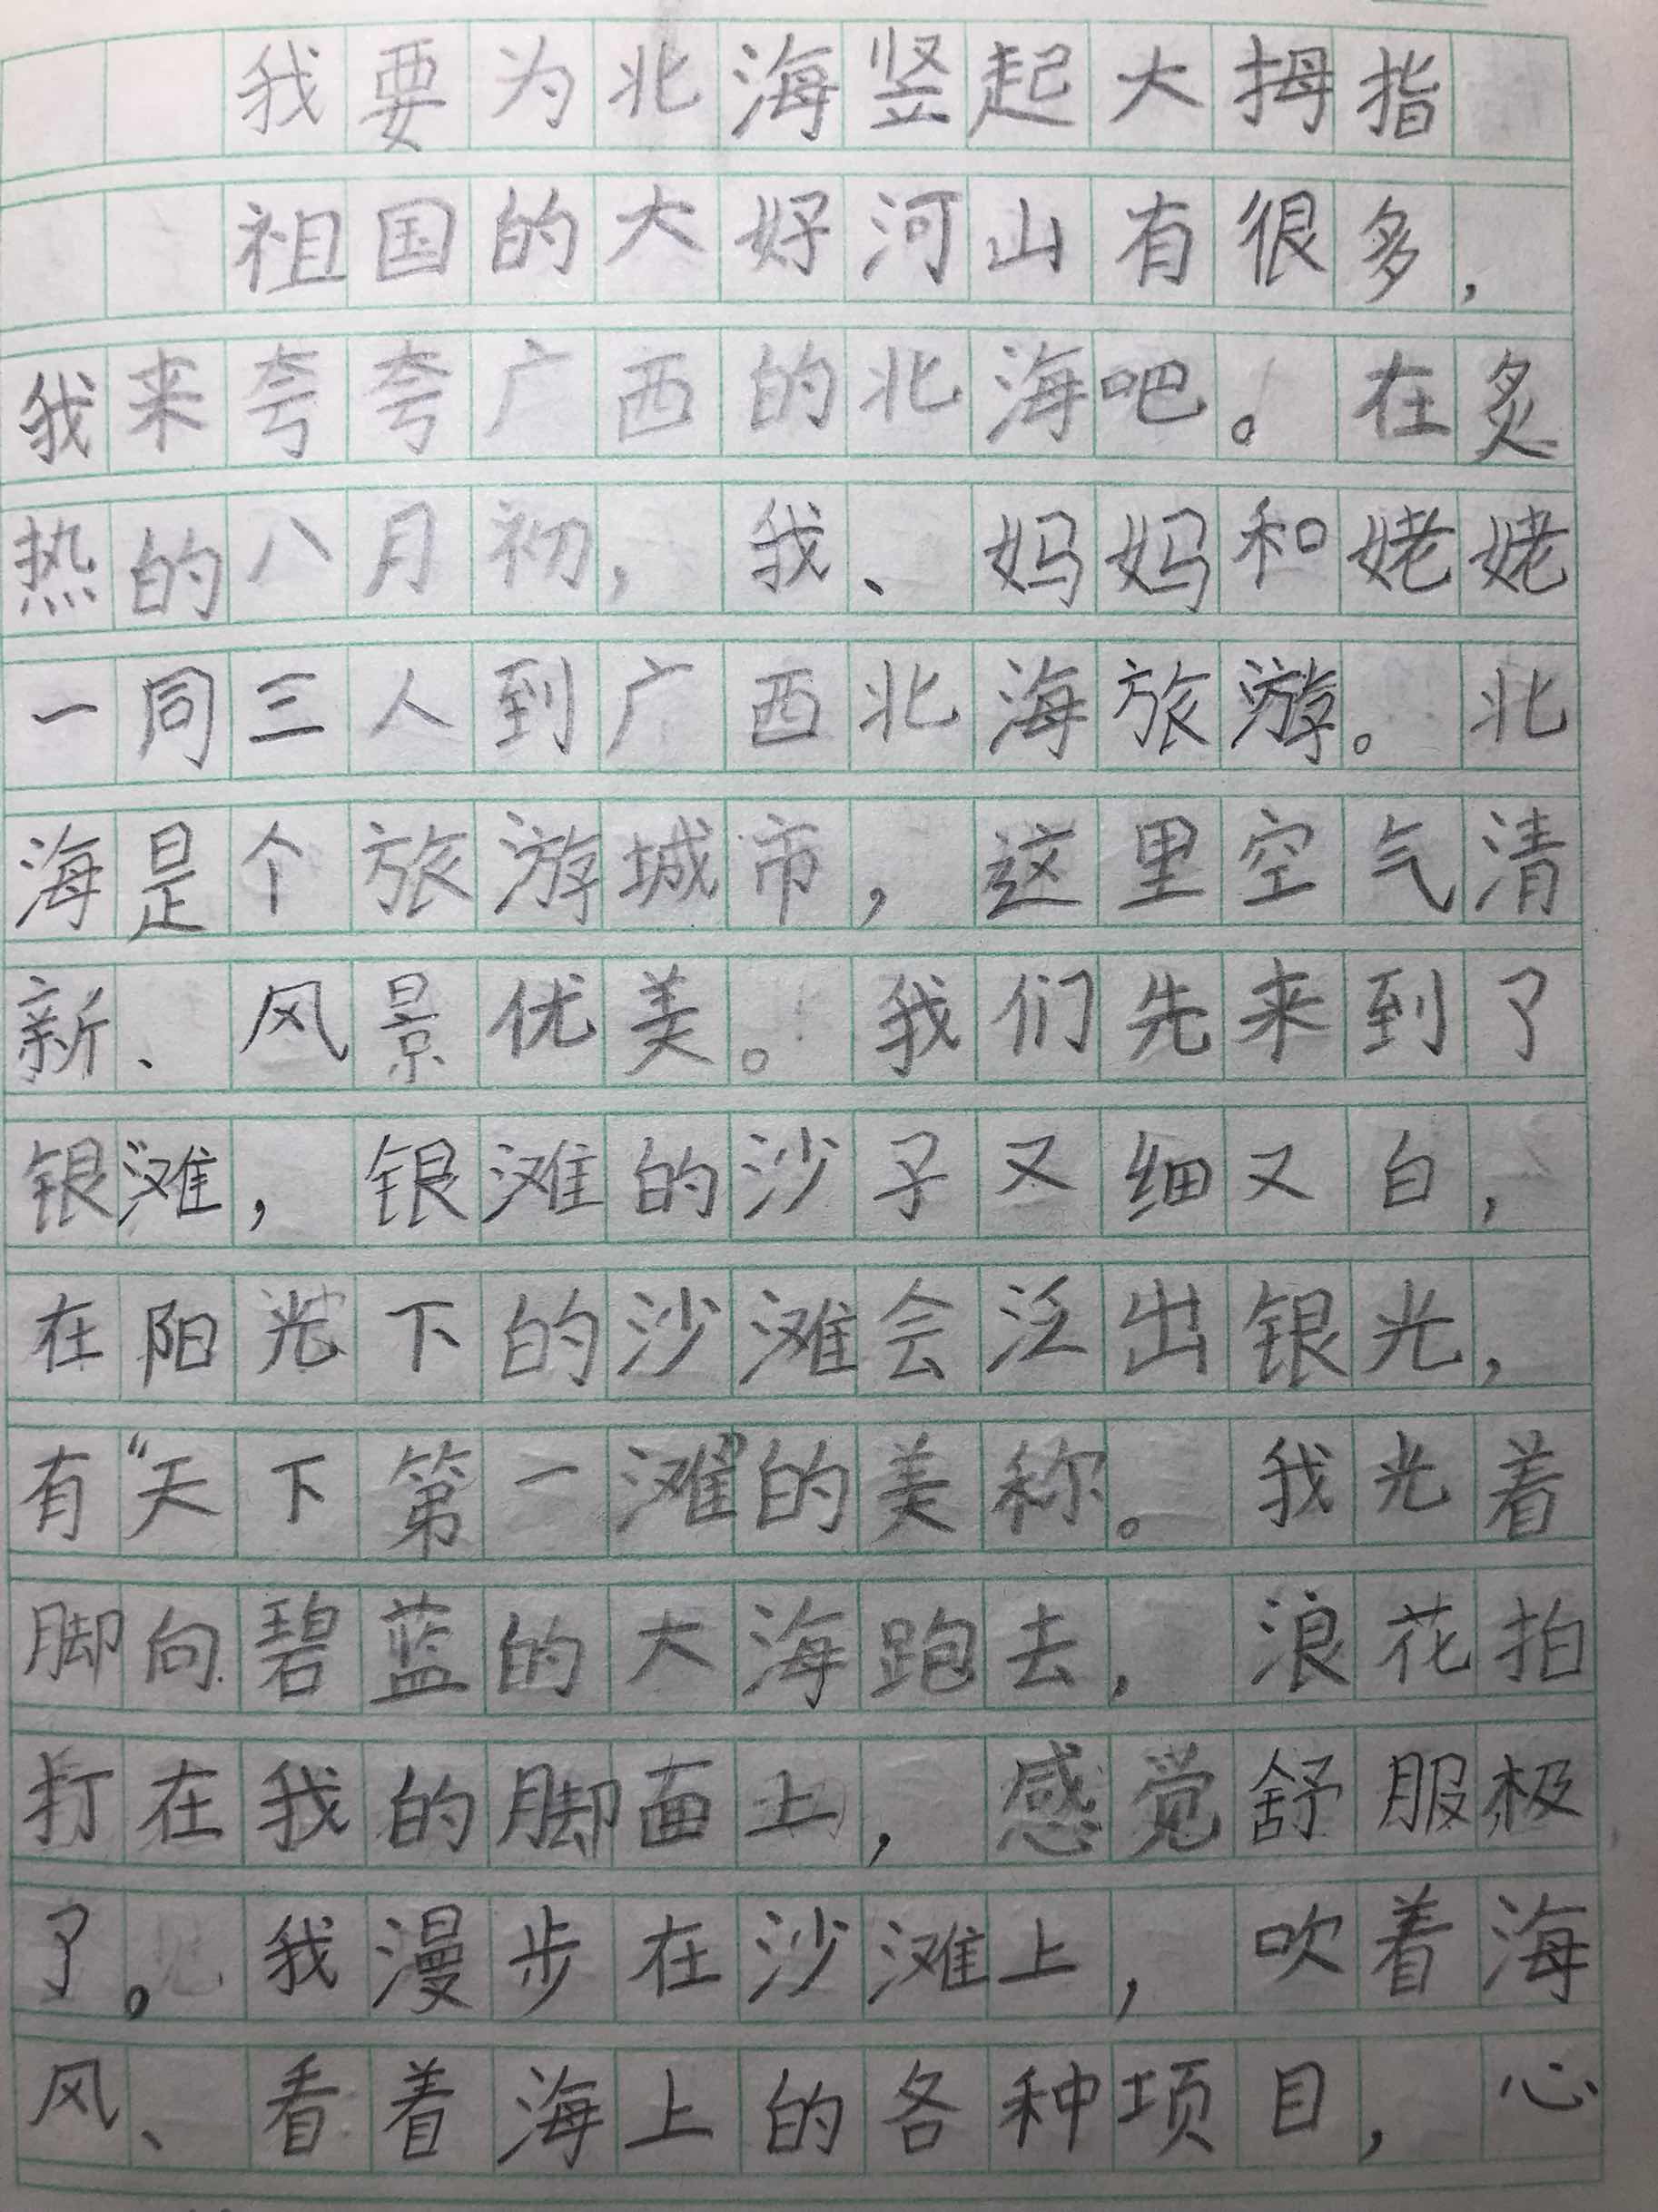 我要为北海竖起大拇指
祖国的大好河山有很多，
我来夸夸广西的北海吧。在炙
热的八月初，我、妈妈和姥姥
一同三人到广西北海旅游。北
海是个旅游城市，这里空气清
新、风景优美。我们先来到了
银滩，银滩的沙子又细又白，
在阳光下的沙滩会泛出银光，
有“天下第一滩”的美称。我光着
脚向碧蓝的大海跑去，浪花拍
打在我的脚面上，感觉舒服极
了。我漫步在沙滩上，吹着海
风、看着海上的各种项目，心